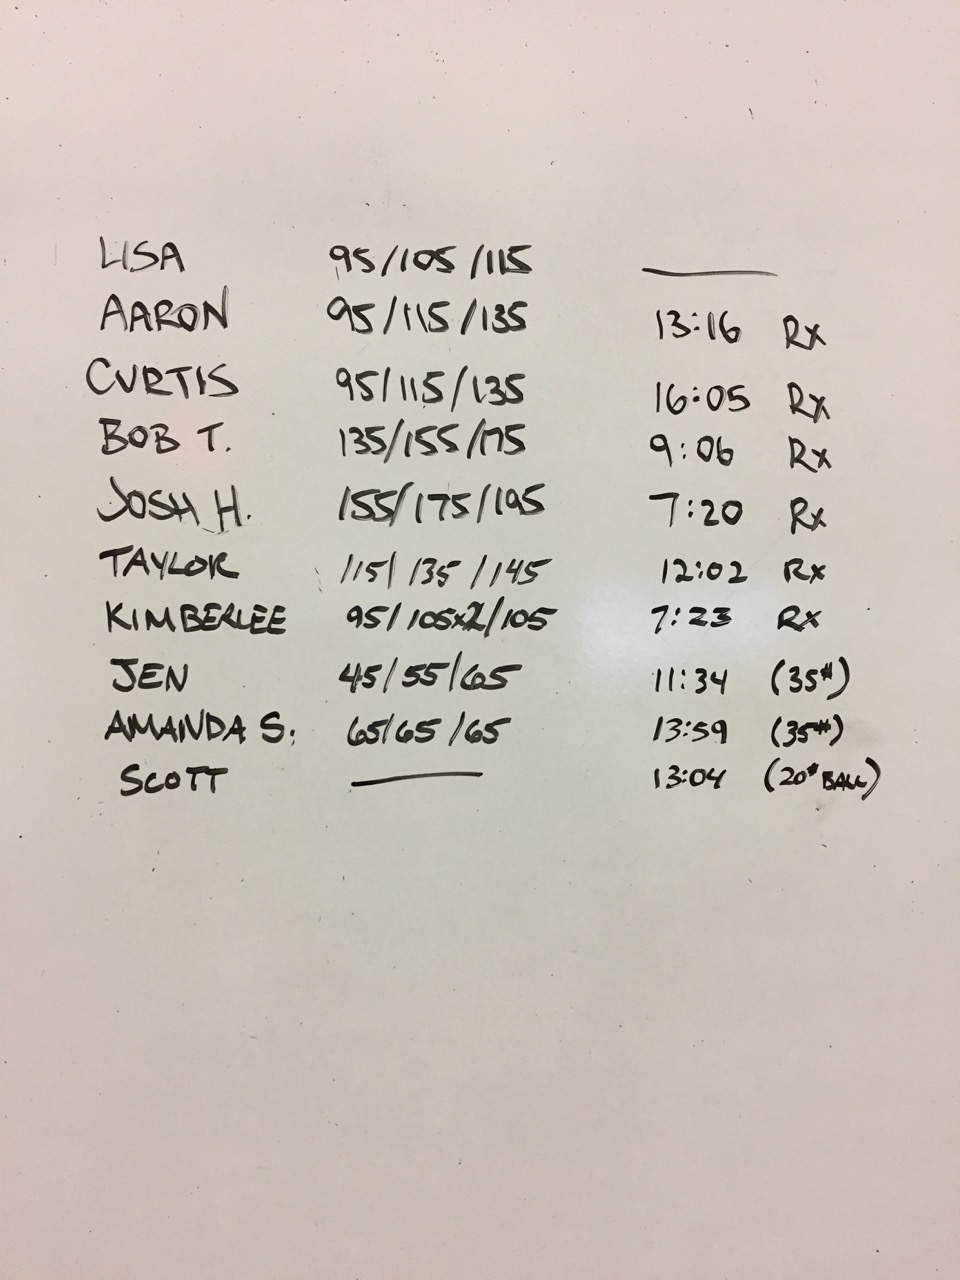 LISA 95/105/115 ———
AARON 95/115/135 13:16 Rx
CURTIS 95/115/135 16:05 Rx
BOB T. 135/155/175 9:06 Rx
JOSH H. 155/175/195 7:20 Rx
TAYLOR 115/135/145 12:02 Rx
KIMBERLEE 95/105x2/105 7:23 Rx
JEN 45/55/65 11:34 (35#)
AMANDA S. 65/65/65 13:59 (35#)
SCOTT ——— 13:04 (20# BALL)